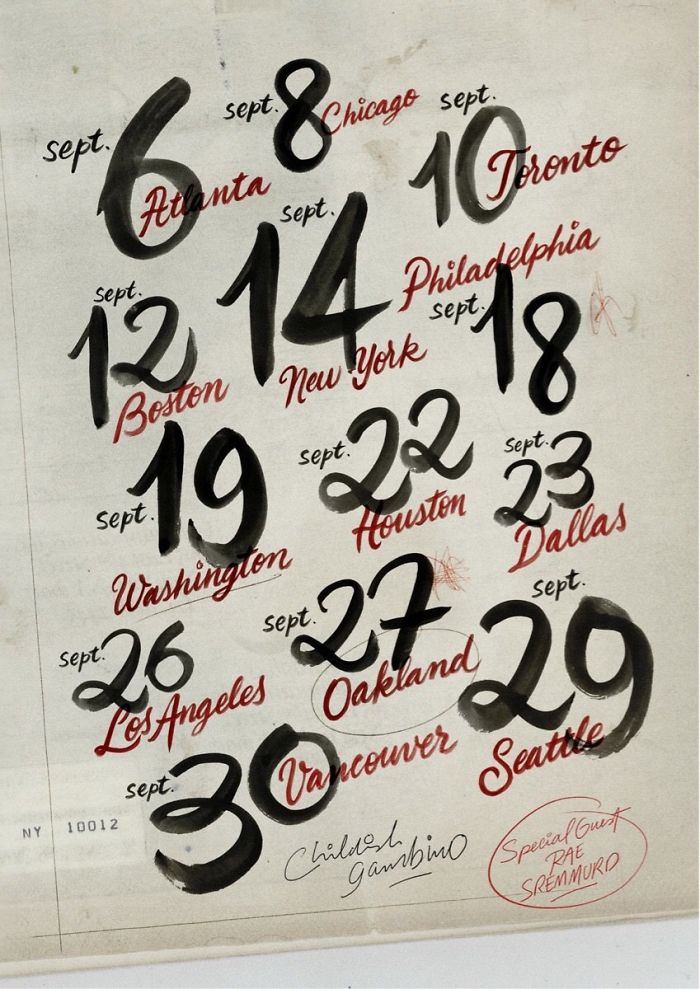 sept. 6
Atlanta
sept. 8
Chicago
sept. 10
Toronto
sept. 12
Boston
sept. 14
New York
Philadelphia
sept. 18
sept. 19
Washington
sept. 22
Houston
sept. 23
Dallas
sept. 26
Los Angeles
sept. 27
Oakland
sept. 29
Seattle
sept. 30
Vancouver
NY 10012
Childish
gambino
Special Guest
RAE
SREMMURD